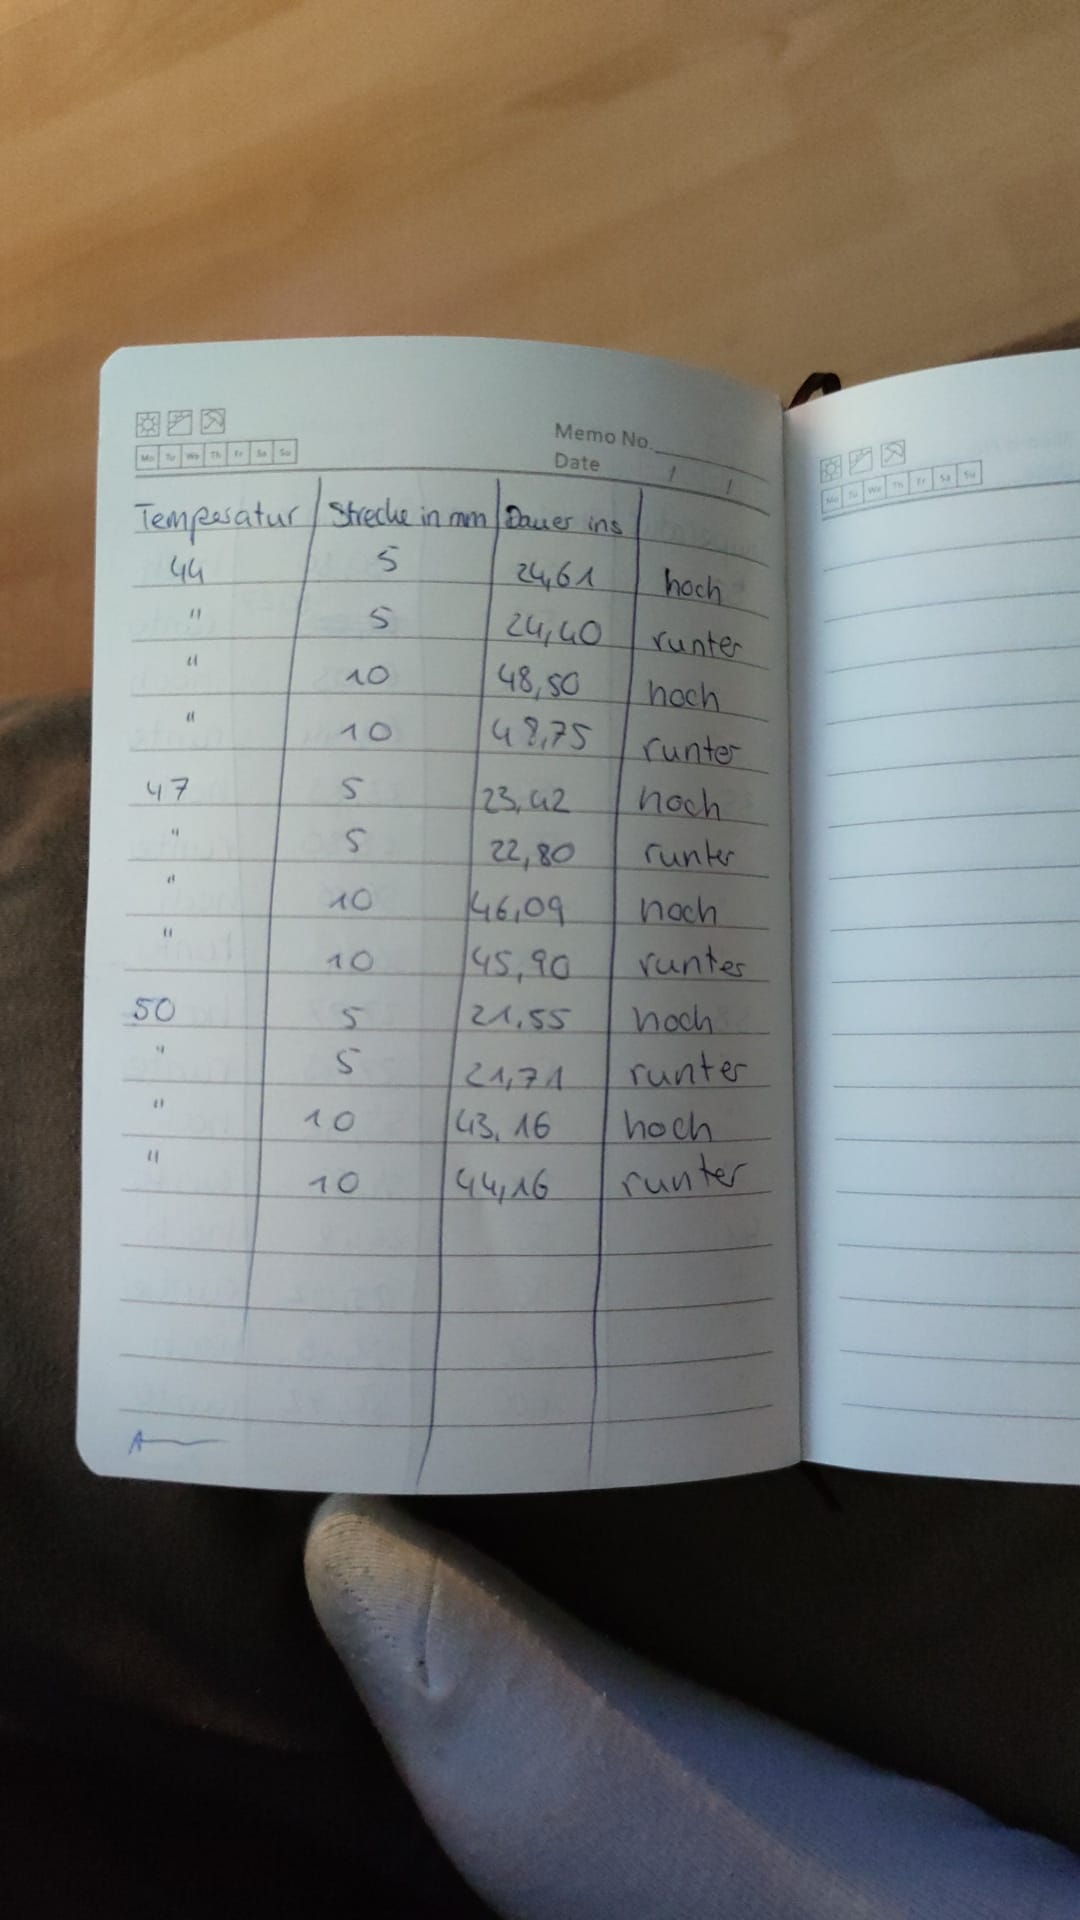 Memo No.
Mo Tu We Th Fr Sa Su
Date / /
Mo Tu We Th Fr Sa Su
Temperatur Strecke in mm Dauer in s
44 5 24,61 hoch
" 5 24,40 runter
" 10 48,50 hoch
" 10 48,75 runter
47 5 23,42 hoch
" 5 22,80 runter
" 10 46,09 hoch
" 10 45,90 runter
50 5 21,55 hoch
" 5 21,71 runter
" 10 43,16 hoch
" 10 44,16 runter